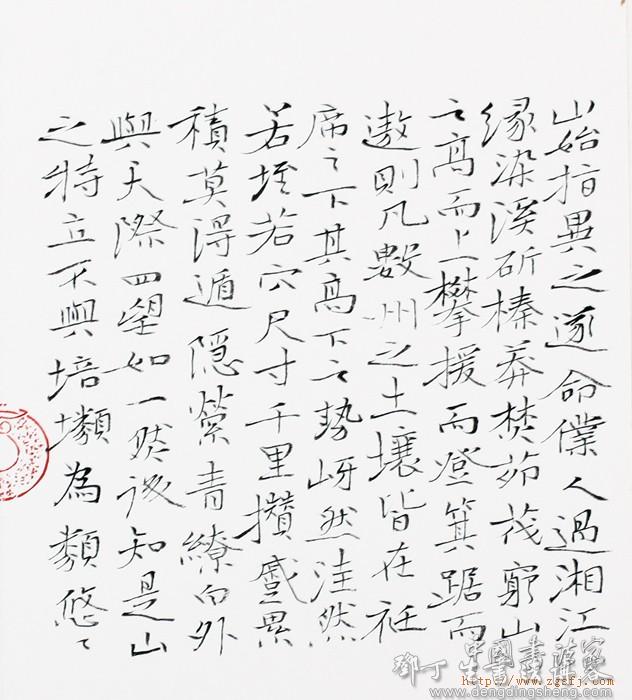 山始指異之遂命僕人過湘江
緣染溪斫榛莽焚茆茷窮山
之高而上攀援而登箕踞而
遨則凡數州之土壤皆在衽
席之下其高下之勢岈然洼然
若垤若穴尺寸千里攢蹙累
積莫得遁隱縈青繚白外
與天際四望如一然後知是山
之特立不與培塿為類悠々
www.dengdingsheng.com